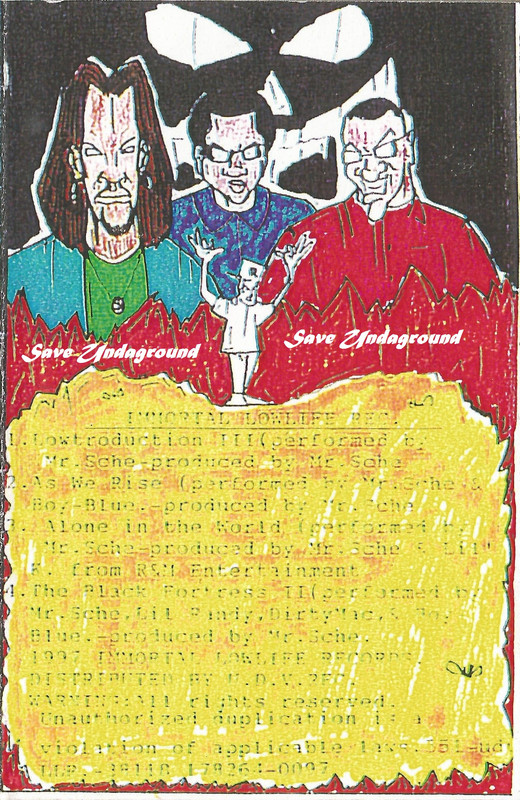 Save Undaground
Save Undaground
IMMORTAL LOWLIFE REC.
1.Lowtroduction III(performed by
Mr.Sche-produced by Mr.Sche
2.As We Rise (performed by Mr.Sche &
Boy-Blue.-produced by Mr.Sche
3. Alone in the World (performed by
Mr.Sche-produced by Mr.Sche & Lil'
R. from R&M Entertainment
4.The Black Fortress II(performed by
Mr.Sche,Lil Randy,DirtyMac,& Boy
Blue.-produced by Mr.Sche.
1997 IMMORTAL LOWLIFE RECORDS.
DISTRIBUTED BY REC.
WARNING:All rights reserved.
Unauthorized duplication is a
violation of applicable laws.